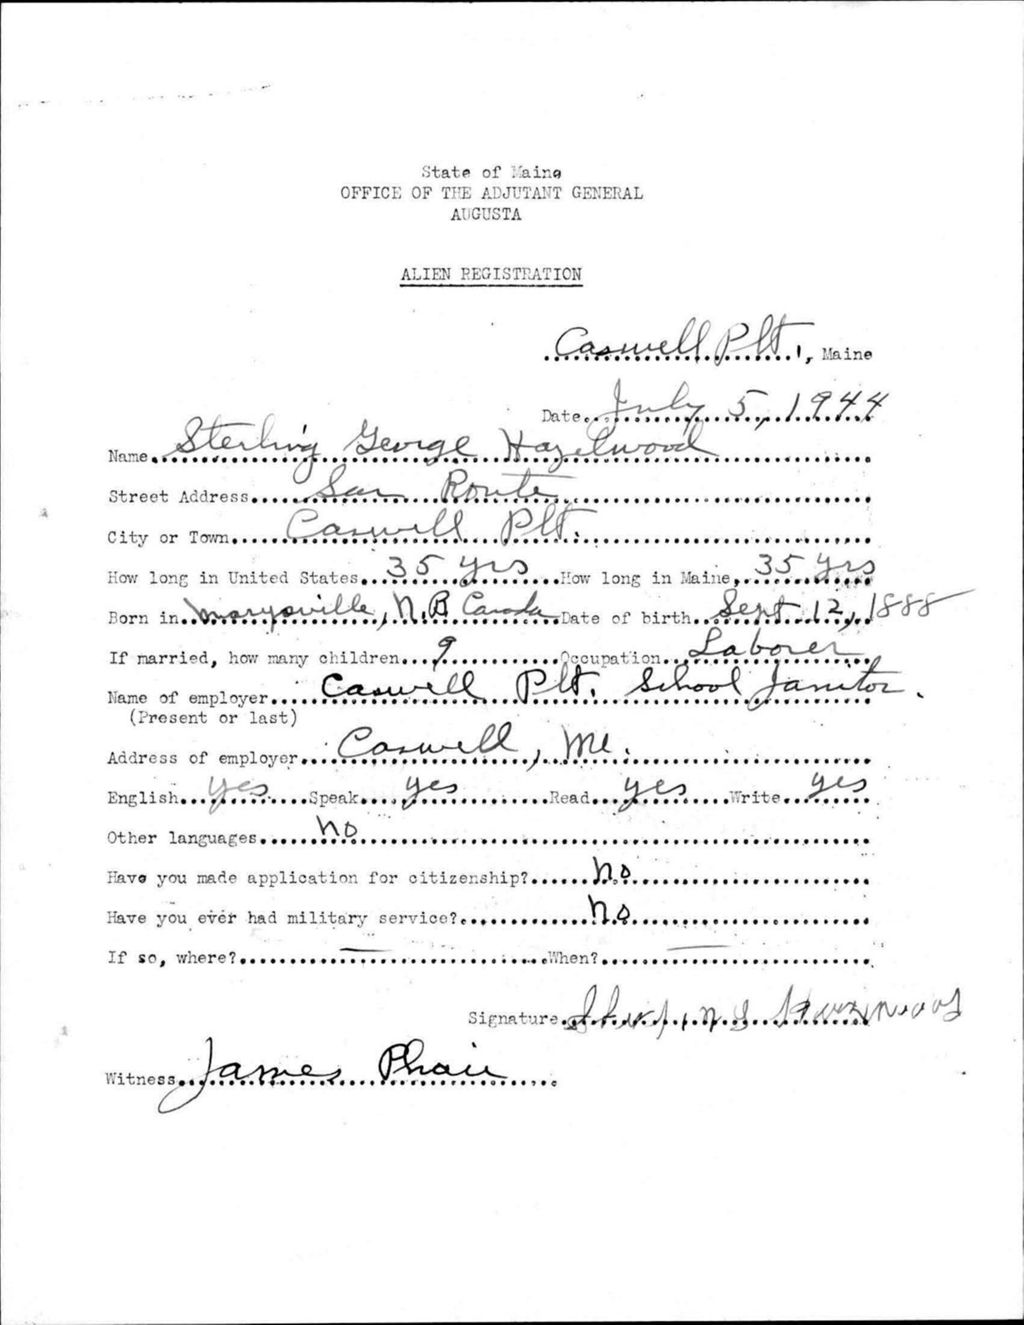 State of Maine
OFFICE OF THE ADJUTANT GENERAL
AUGUSTA
ALIEN REGISTRATION
Caswell Plt., Maine
Date July 5, 1944
Name Sterling George Hazelwood
Street Address Route
City or Town Caswell Plt.
How long in United States 35 yrs How long in Maine 35 yrs
Born in Marysville, N.B Canada Date of birth Sept 12, 1888
If married, how many children 9 Occupation Laborer
Name of employer Caswell Plt. School Janitor.
(Present or last)
Address of employer Caswell, Me.
English yes Speak yes Read yes Write yes
Other languages no
Have you made application for citizenship? no
Have you ever had military service? no
If so, where? — When? —
Signature
Witness James Phair